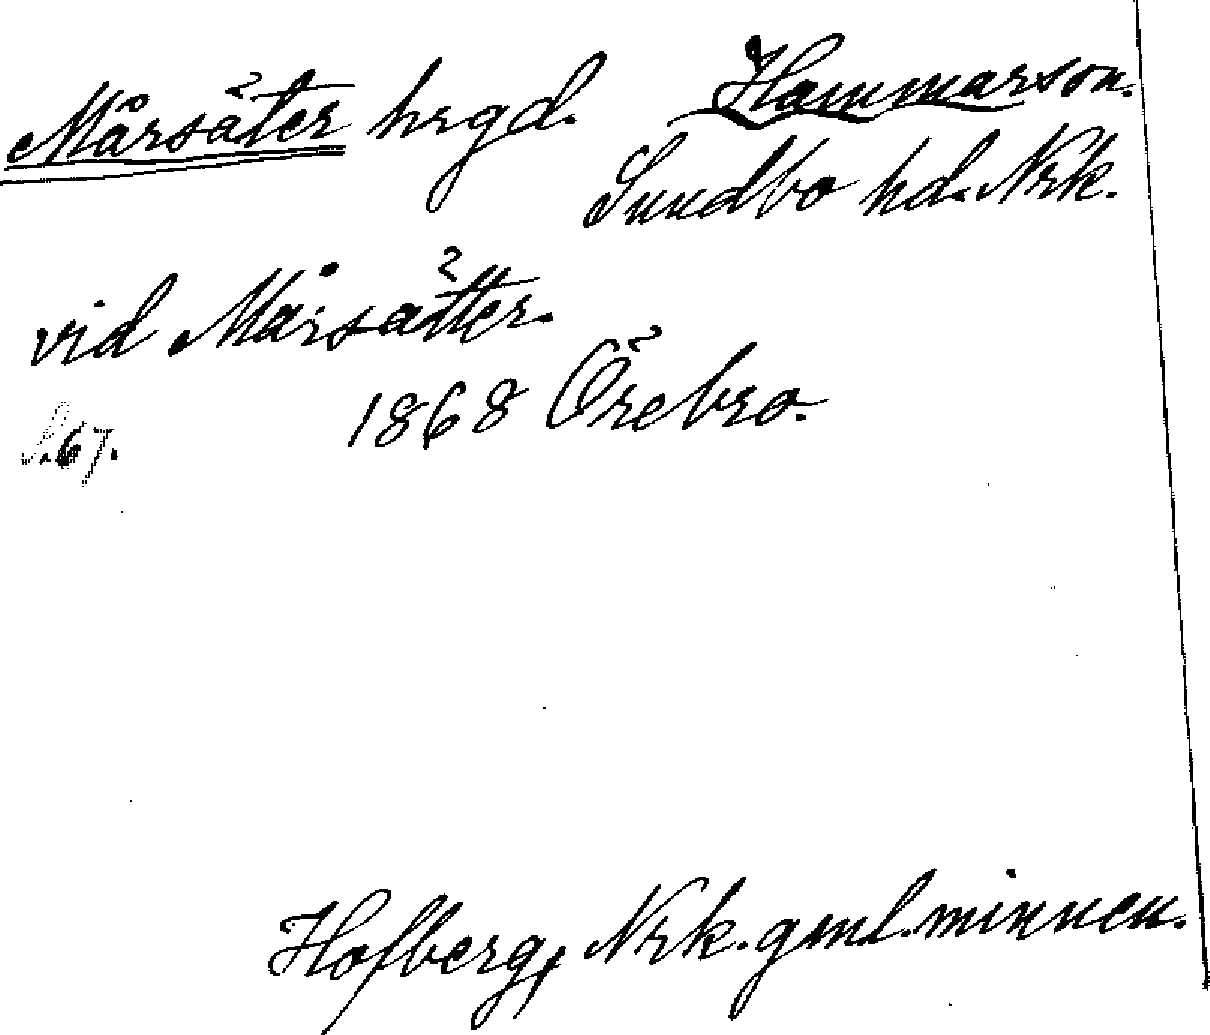 Mårsäter hrgd. Hammarson.
Sundbo hd. Nrk.
vid Mårsätter.
1868 Örebro.
S. 67.
Hofberg, Nrk. gml. minnen.